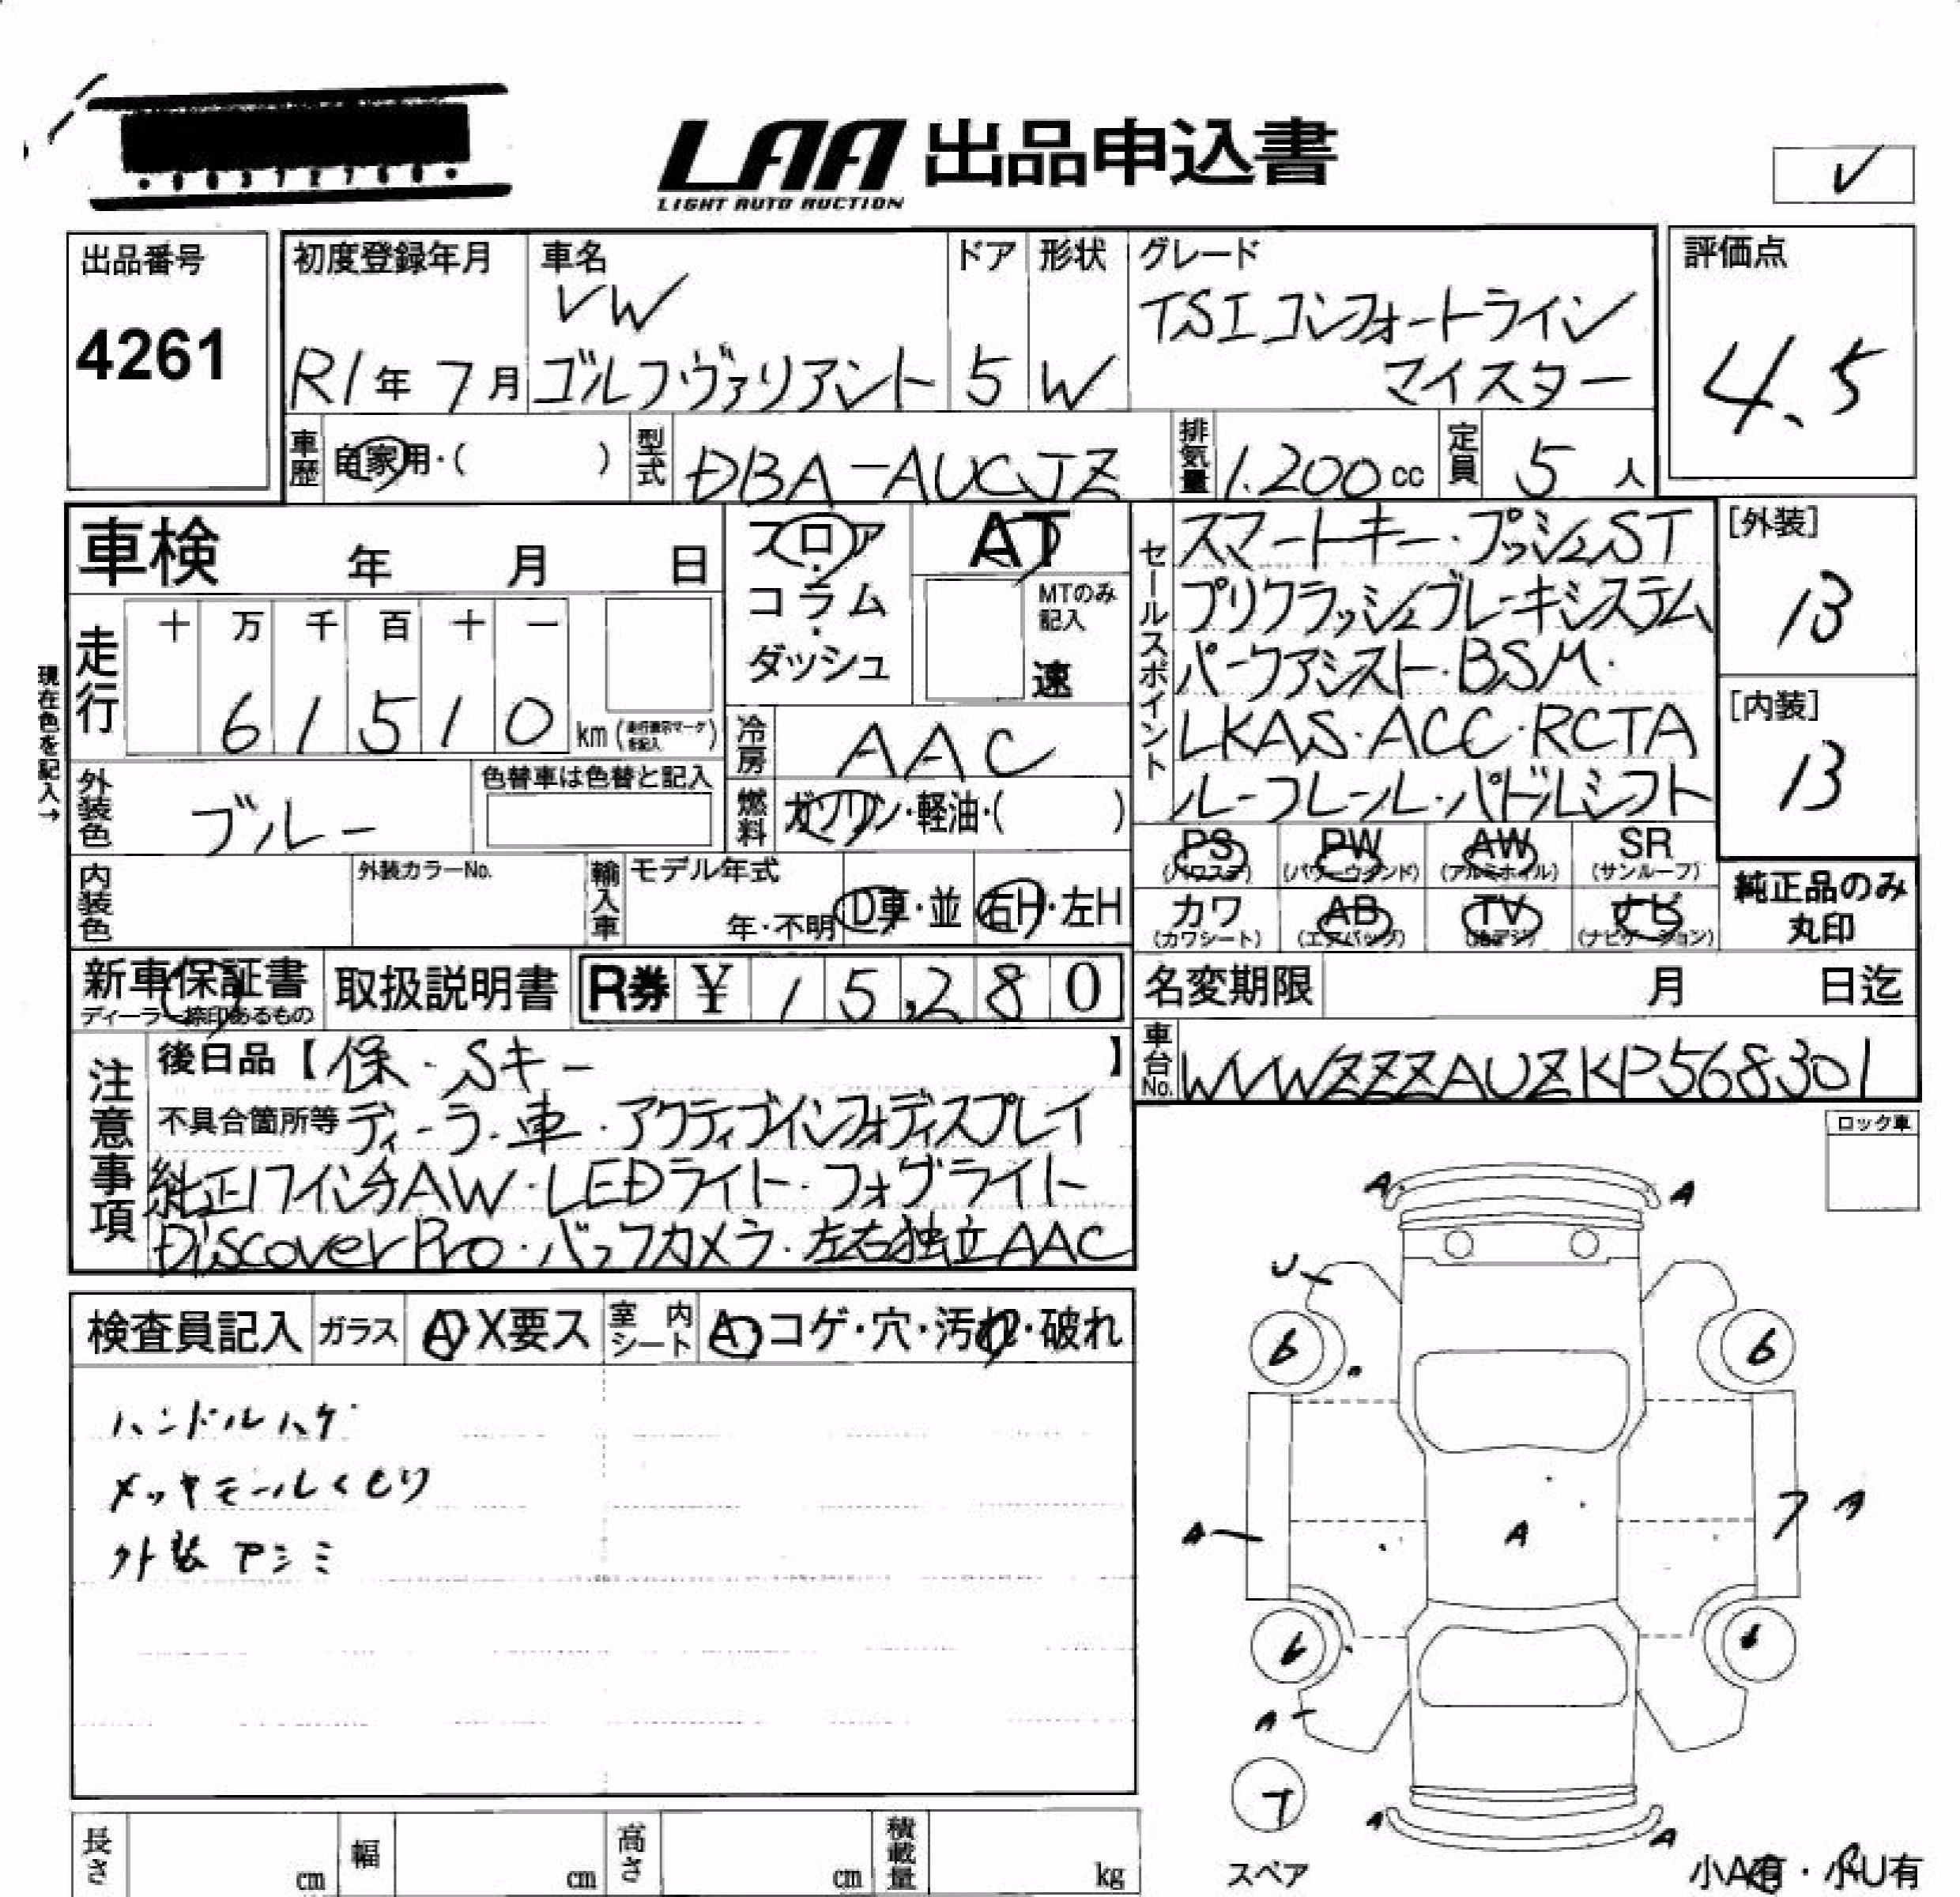 LAA 出品申込書
LIGHT AUTO AUCTION
出品番号
4261
初度登録年月
R1年 7月
車名
VW
ゴルフヴァリアント
ドア
5
形状
W
グレード
TSIコンフォートライン
マイスター
評価点
4.5
車歴 自家用・( )
型式 DBA-AUCJZ
排気量 1.200cc
定員 5人
車検 年 月 日
フロア・コラム・ダッシュ
AT
MTのみ記入
速
現在色を記入→
走行 十 万 千 百 十 一
61510 km
冷房 AAC
外装色 ブルー
色替車は色替と記入
燃料 ガソリン・軽油・( )
内装色
外装カラーNo.
輸入車 モデル年式
年・不明
D車・並
右H・左H
セールスポイント
スマートキー・プッシュST
プリクラッシュブレーキシステム
パークアシスト・BSM・
LKAS・ACC・RCTA
ルーフレール・パドルシフト
[外装]
13
[内装]
13
PS (パワステ) PW (パワーウインド) AW (アルミホイル) SR (サンルーフ)
カワ (カワシート) AB (エアバッグ) TV (地デジ) ナビ (ナビゲーション)
純正品のみ
丸印
新車保証書
ディーラー捺印あるもの
取扱説明書
R券 ¥ 15,280
名変期限 月 日迄
車台No. WVWZZZAUZKP568301
注意事項
後日品【保・Sキー 】
不具合箇所等 ディーラー車・アクティブインフォディスプレイ
純正17インチAW・LEDライト・フォグライト
Discover Pro・バックカメラ・左右独立AAC
ロック車
検査員記入 ガラス A・X要ス 室内シート A・コゲ・穴・汚れ・破れ
ハンドルハゲ
メッキモールくもり
外装アシミ
A A
U
6 6
A A
6 6
A
T
スペア
A A
小A有・小U有
長さ cm 幅 cm 高さ cm 積載量 kg